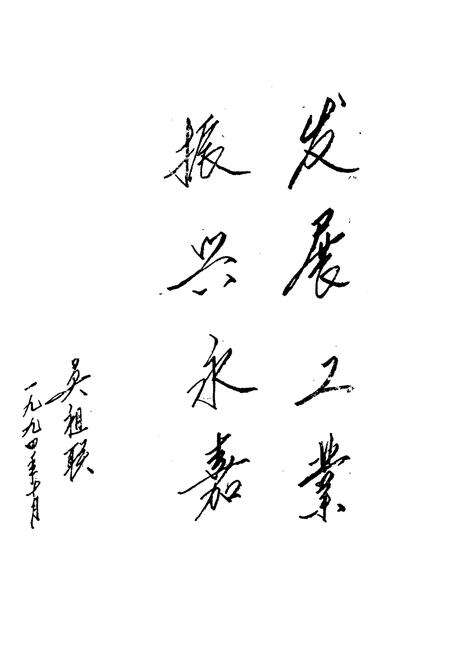 发展工业
振兴永嘉
吴祖联
一九九四年十月